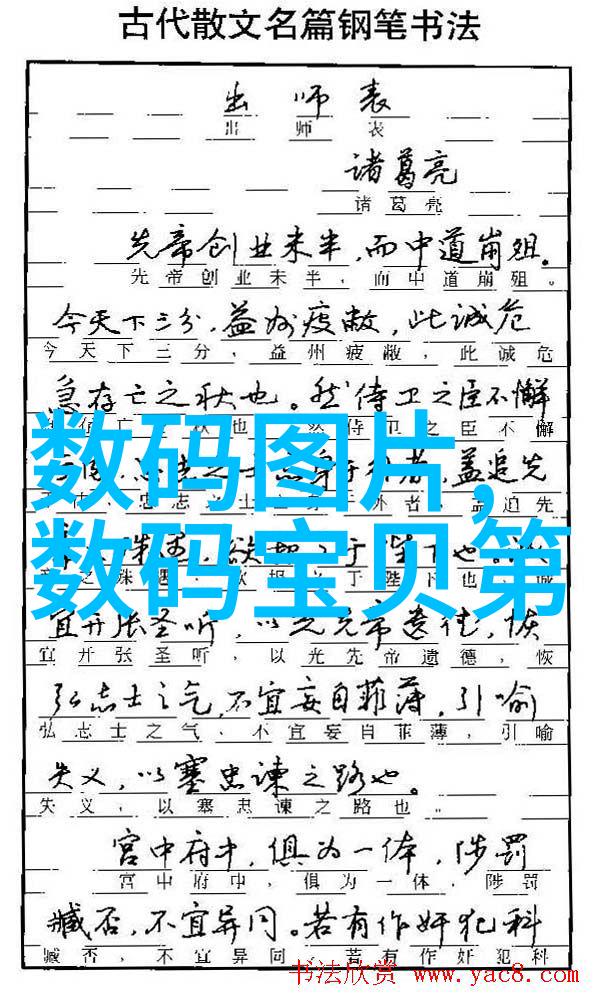 古代散文名篇钢笔书法
出师表
出师表
诸葛亮
诸葛亮
先帝创业未半，而中道崩殂。
先帝创业未半，而中道崩殂。
今天下三分，益州疲敝，此诚危
今天下三分，益州疲敝，此诚危
急存亡之秋也。然侍卫之臣不懈
秋也 然侍卫之臣不懈
数码图片，
外者，盖追先
忠志之士 外者，盖追先
殊遇，欲报 于陛下也。
之殊遇，欲报 于陛下也 诚
数码宝贝第
宜开张圣听，以光先帝遗德，恢
宜开张圣听，以光先帝遗德，恢
弘志士之气，不宜妄自菲薄，引喻
弘志士之气，不宜妄自菲薄，引喻
失义，以塞忠谏之路也。
失义，以塞忠谏之路也。
宫中府中，俱为一体，陟罚
宫中府中，俱为一体，陟罚
臧否，不宜异同。若有作奸犯科
臧否，不宜异同。若有作奸犯科
书法欣赏 www.yac8.com